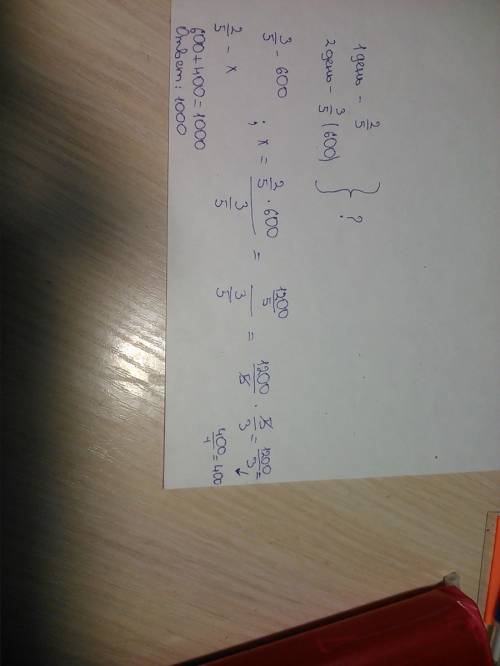 1 день - 2/5
2 день - 3/5 (600) } ?
3/5 - 600
2/5 - x ; x = (2/5 · 600)/(3/5) = (1200/5)/(3/5) = 1200/5 · 5/3 = 1200/3 =
400/1 = 400
600 + 400 = 1000
Ответ: 1000